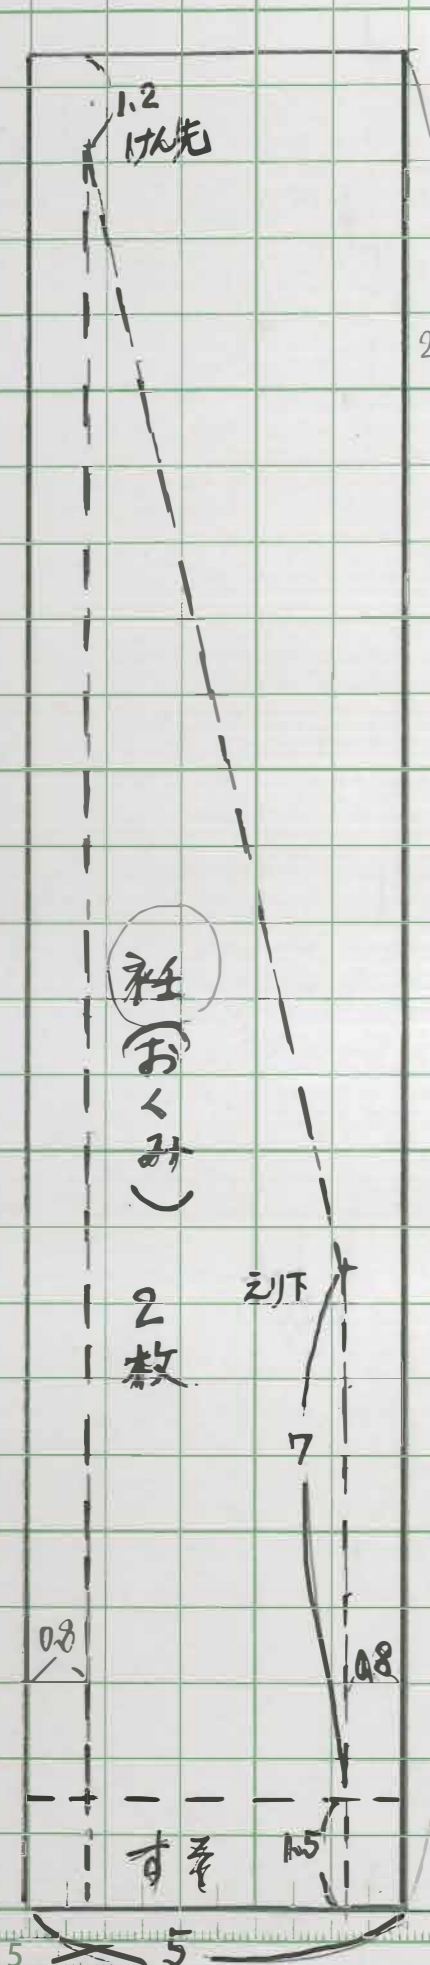 1.2
けん先
2
衽(おくみ)
2枚
えり下
7
0.8
0.8
すそ
1.5
5
5